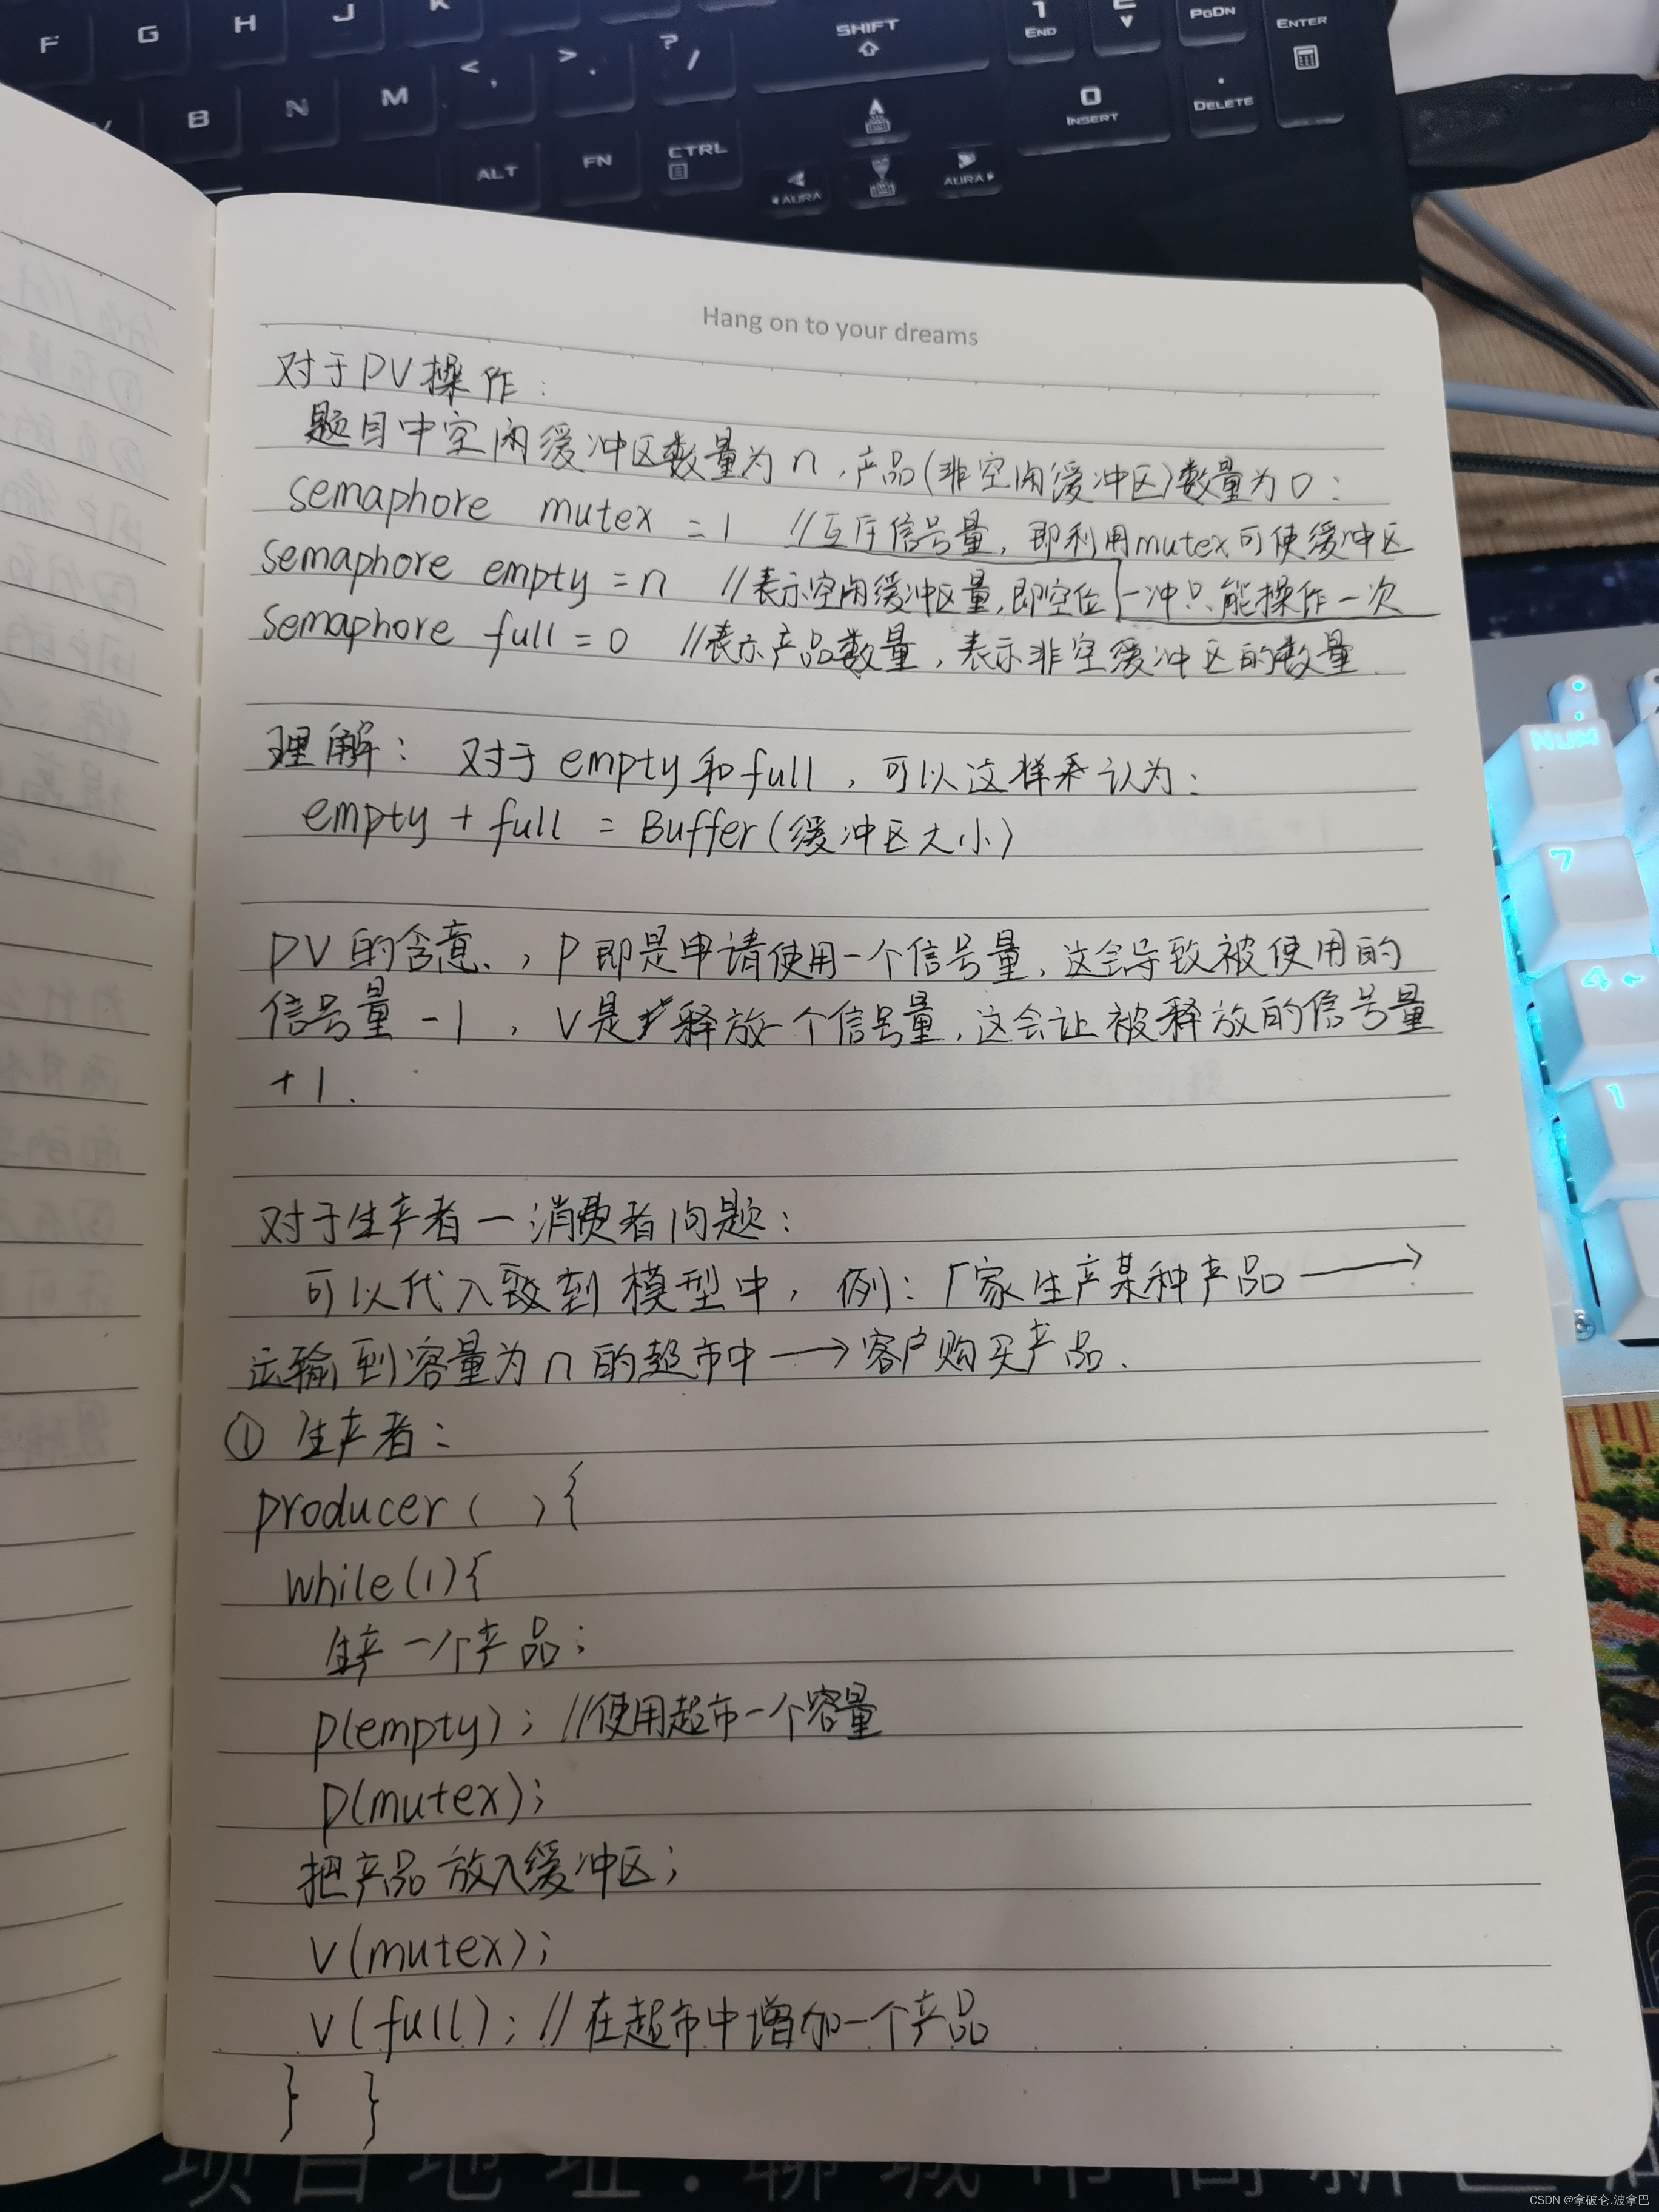 F G H J K
SHIFT
1 END
PGDN
ENTER
B N M < , > . ? /
0 INSERT
. DELETE
ALT FN CTRL
AURA AURA
Hang on to your dreams
对于PV操作:
题目中空闲缓冲区数量为n,产品(非空闲缓冲区)数量为0:
semaphore mutex = 1 //互斥信号量,即利用mutex可使缓冲区
semaphore empty = n //表示空闲缓冲区量,即空位 一冲只能操作一次
semaphore full = 0 //表示产品数量,表示非空缓冲区的数量.
理解: 对于empty和full,可以这样来认为:
empty + full = Buffer(缓冲区大小)
PV的含意,P即是申请使用一个信号量,这会导致被使用的
信号量-1,V是释放一个信号量,这会让被释放的信号量
+1.
对于生产者一消费者问题:
可以代入到模型中,例:厂家生产某种产品→
运输到容量为n的超市中→客户购买产品.
① 生产者:
producer( ){
while(1){
生产一个产品;
p(empty); //使用超市一个容量
p(mutex);
把产品放入缓冲区;
v(mutex);
v(full); //在超市中增加一个产品
} }
NUM
7
4
1
项目地址:聊城市高新区
CSDN @拿破仑.波拿巴